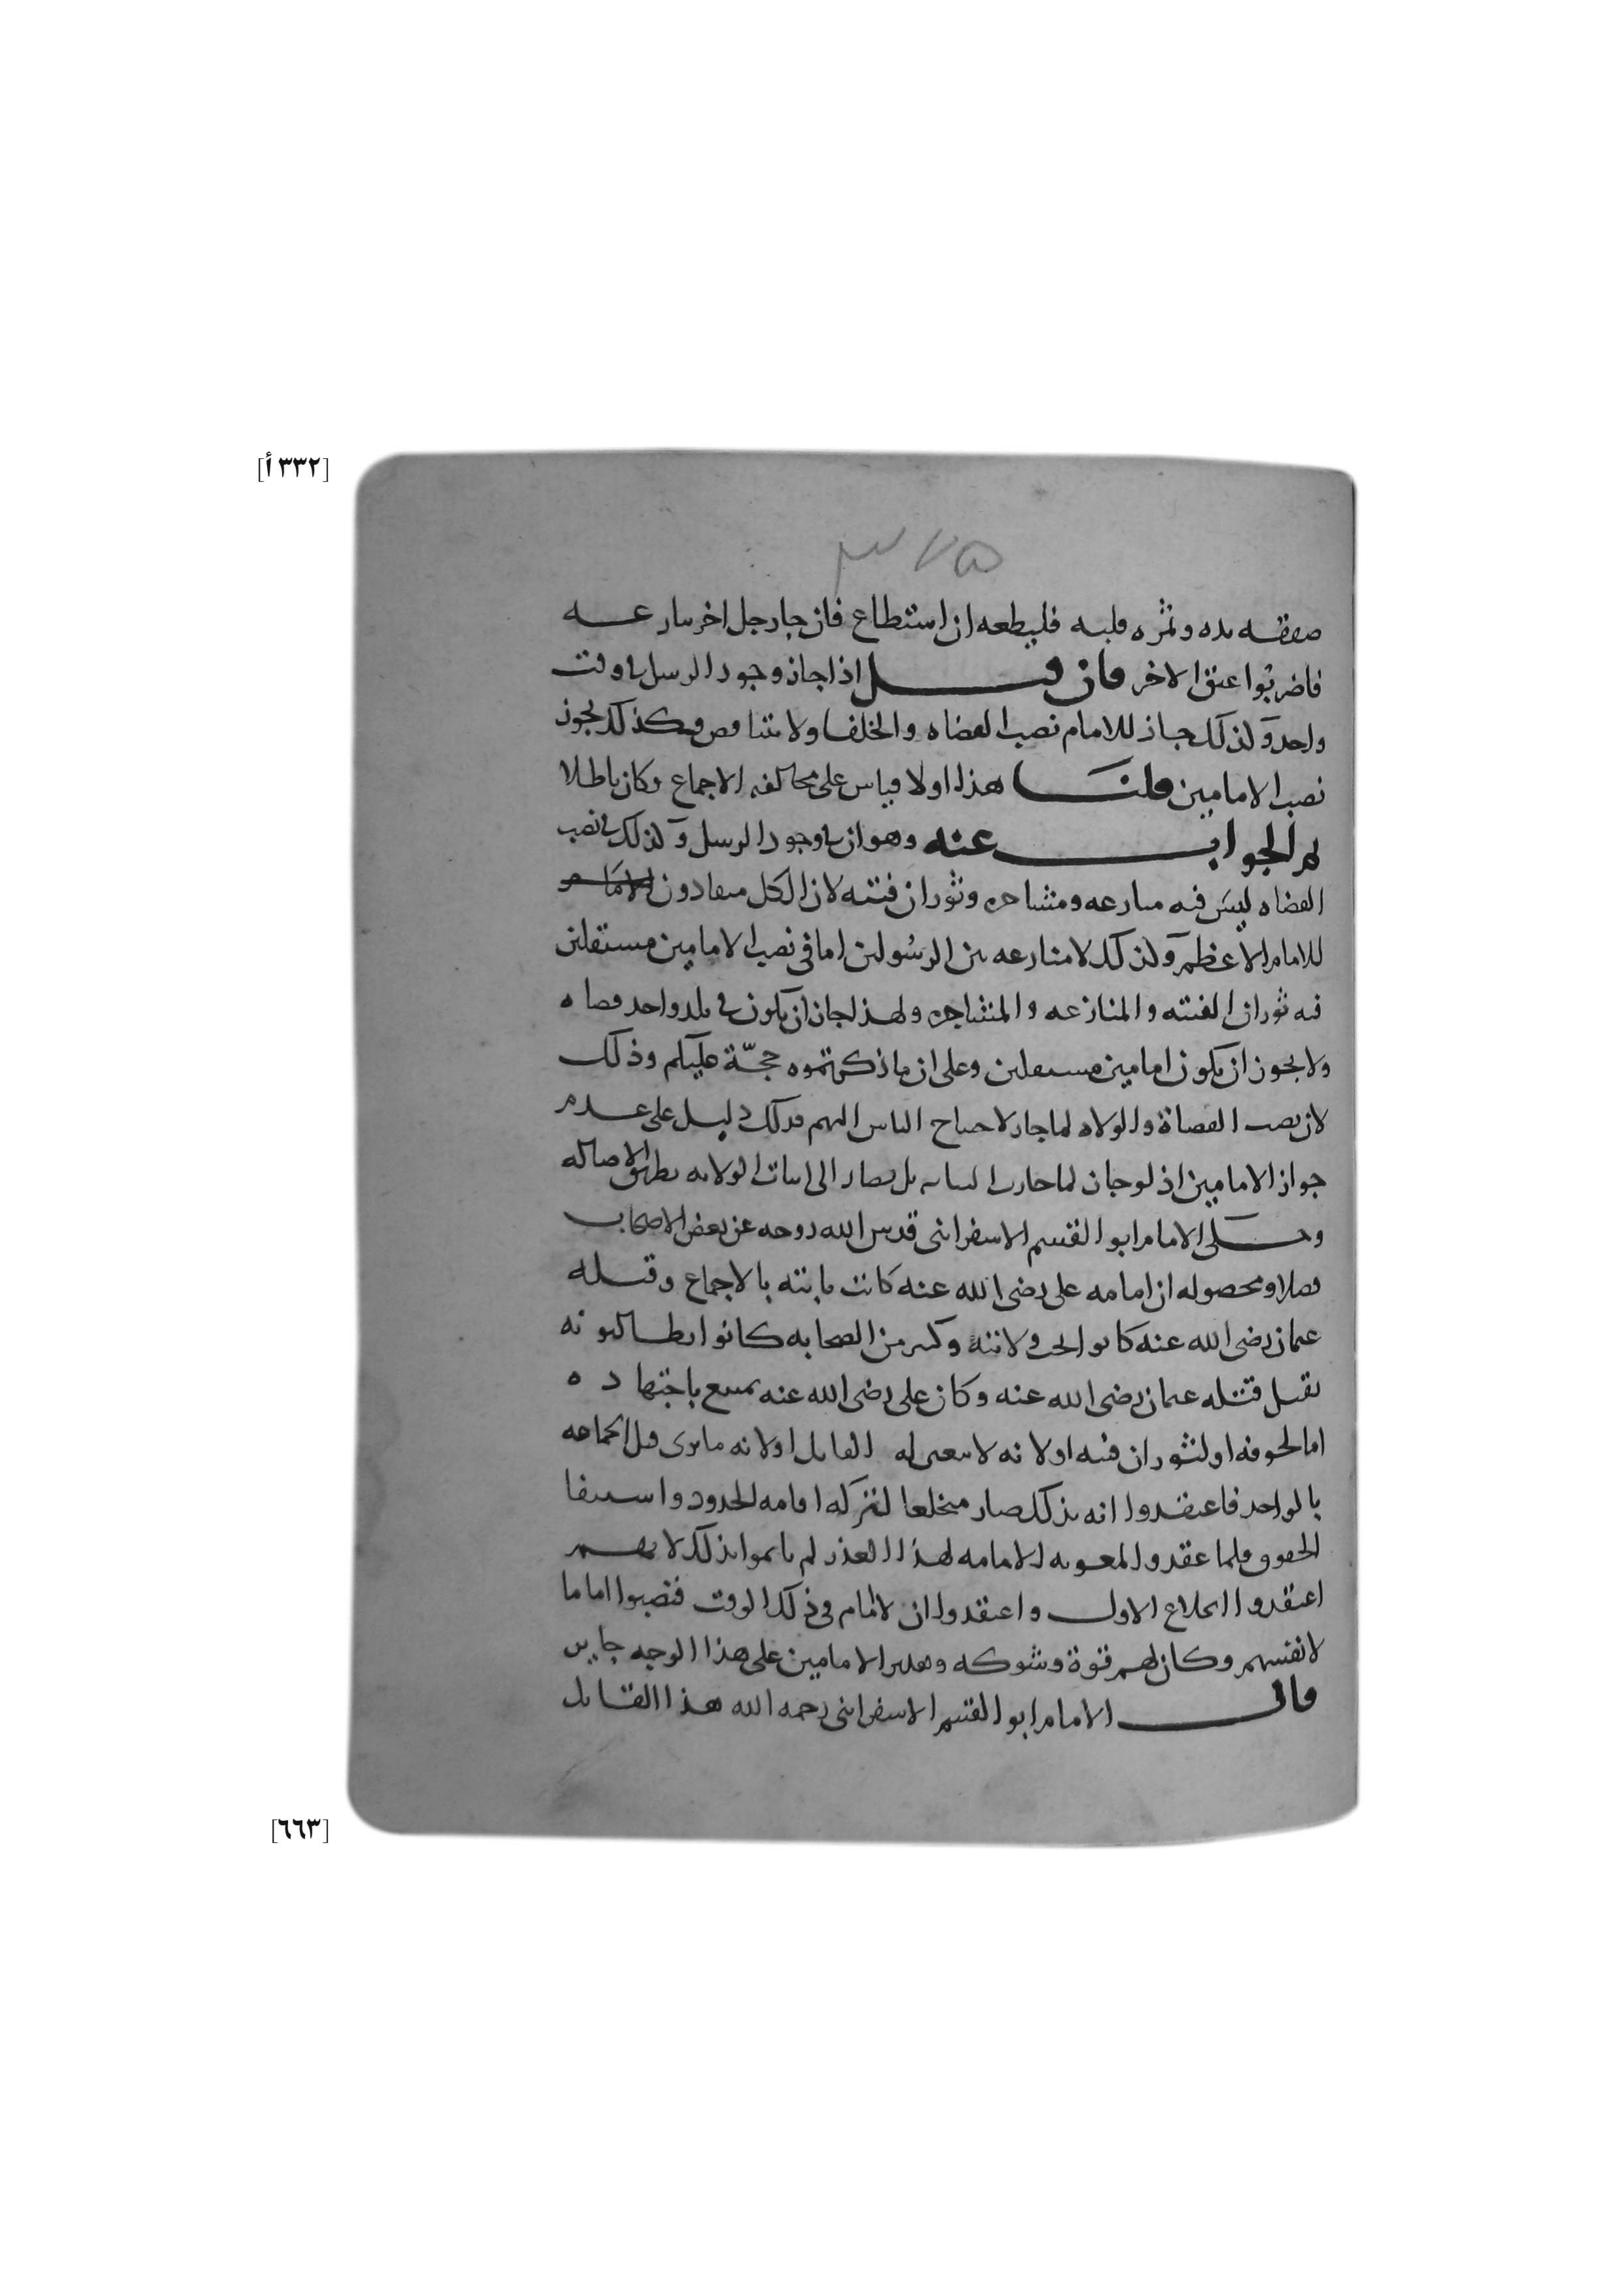 [٣٣٢ أ]
٣٧٥
صفقه يده وثمره قلبه فليطعه ان استطاع فان جا رجل اخر ينازعه
فاضربوا عنق الاخر فان قيل اذا جاز وجود الرسل في وقت
واحد وكذلك جاز للامام نصب القضاه والخلفا ولا يتناقض وكذلك يجوز
نصب الامامين قلنا هذا اولا قياس على مخالفه الاجماع وكان باطلا
ثم الجواب عنه وهو ان في وجود الرسل وكذلك في نصب
القضاه ليس فيه منازعه ومشاجره وثوران فتنه لان الكل منقادون
للامام الاعظم وكذلك لا منازعه بين الرسولين اما في نصب الامامين مستقلين
فيه ثوران الفتنه والمنازعه والمشاجره ولهذا جاز ان يكون في بلد واحد قضاه
ولا يجوز ان يكون امامين مستقلين وعلى ان ما ذكرتموه حجّة عليكم وذلك
لان نصب القضاة والولاه لما جاز لاحتياج الناس اليهم فذلك دليل على عدم
جواز الامامين اذ لو جاز لما جاز النيابه بل يصار الى اثبات الولايه بطريق الاصاله
وحكى الامام ابو القسم الاسفرايني قدس الله روحه عن بعض الاصحاب
فصلا ومحصوله ان امامه على رضى الله عنه كانت ثابته بالاجماع وقتله
عثمان رضى الله عنه كانوا تحت ولايته وكثير من الصحابه كانوا يطالبونه
بقتل قتله عثمان رضى الله عنه وكان على رضى الله عنه يمتنع باجتهاده
اما لخوفه او لثوران فتنه او لانه لا يتعين له القاتل او لانه ما يرى قتل الجماعه
بالواحد فاعتقدوا انه بذلك صار منخلعا لتركه اقامه الحدود واستيفا
الحقوق فلما عقدوا لمعويه الامامه لهذا العذر لم ياثموا بذلك لانهم
اعتقدوا انخلاع الاول واعتقدوا ان لا امام في ذلك الوقت فنصبوا اماما
لانفسهم وكان لهم قوة وشوكه الامامين على هذا الوجه جايز
قال الامام ابو القسم الاسفرايني رحمه الله هذا القايل
[٦٦٣]